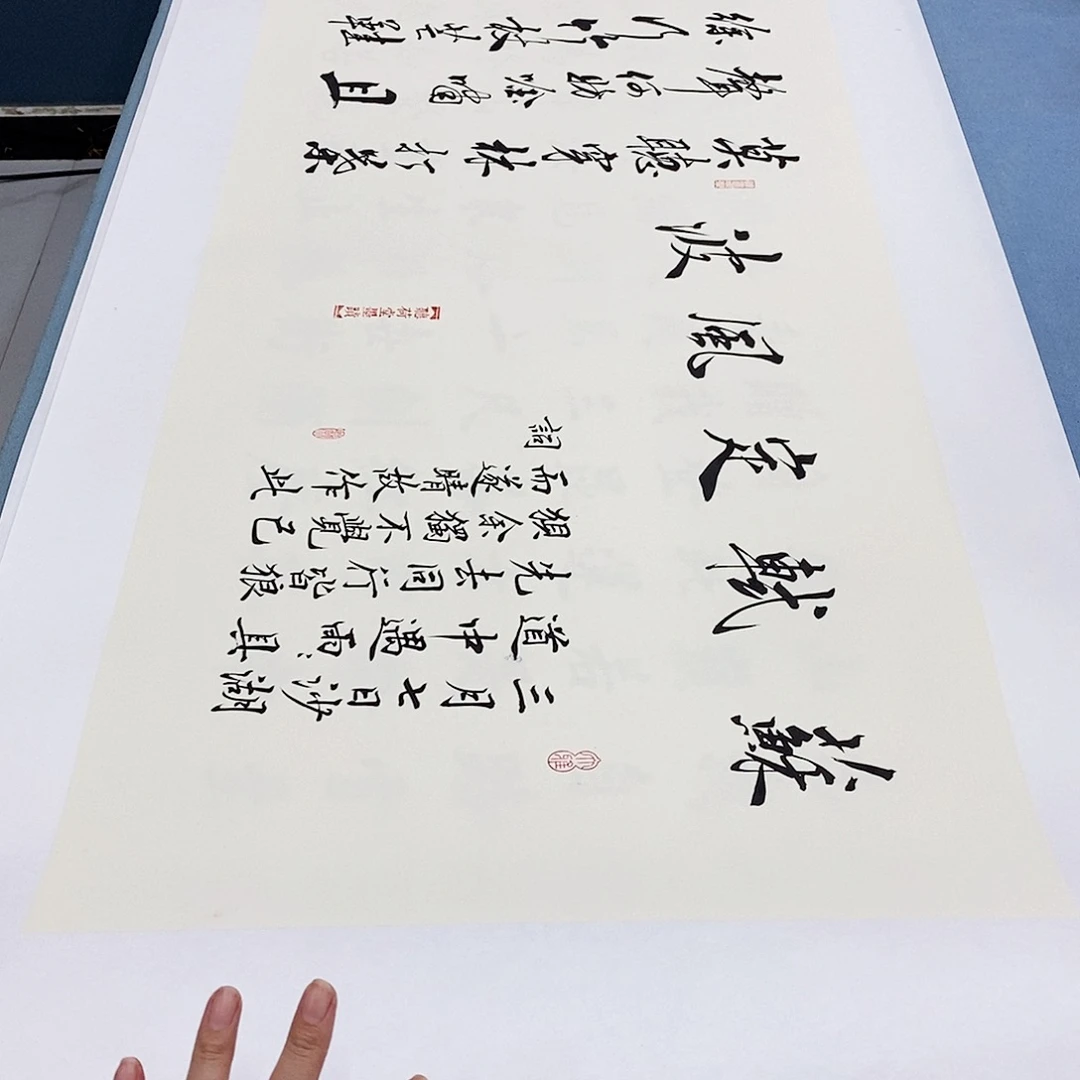 蘇軾定風波
三月七日沙湖
道中遇雨〻具
先去同行皆狼
狽余獨不覺已
而遂晴故作此
詞
莫聽穿林打葉
聲何妨吟嘯且
徐行竹杖芒鞋